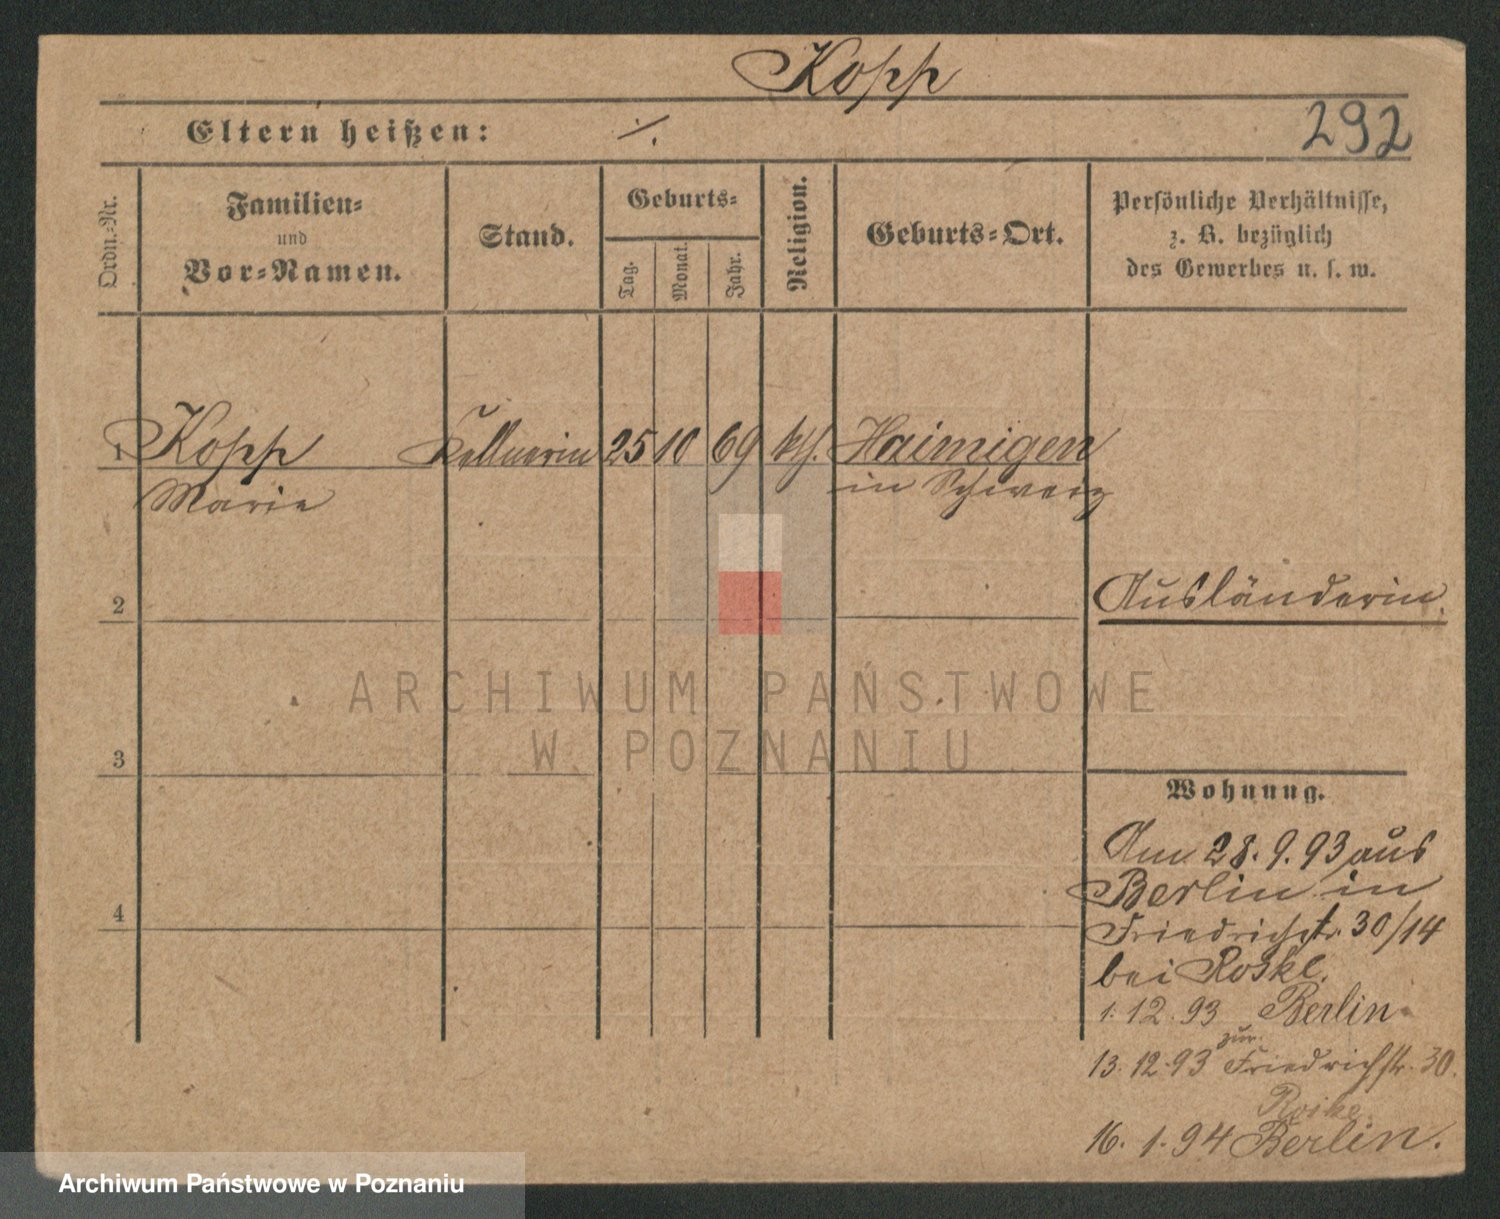 Kopp
Eltern heißen: ./.
292
Ordn.-Nr.
Familien-
und
Vor-Namen.
Stand.
Geburts-
Tag.
Monat.
Jahr.
Religion.
Geburts-Ort.
Persönliche Verhältnisse,
z. B. bezüglich
des Gewerbes u. s. w.
1 Kopp Kellnerin 25 10 69 kth. Haimigen
Marie in Schweiz
2
Ausländerin.
3
ARCHIWUM PAŃSTWOWE
W POZNANIU
Wohnung.
Am 28. 9. 93 aus
Berlin in
4
Friedrichstr. 30/14
bei
1. 12. 93 Berlin.
zur.
13. 12. 93 Friedrichstr. 30.
16. 1. 94 Berlin.
Archiwum Państwowe w Poznaniu